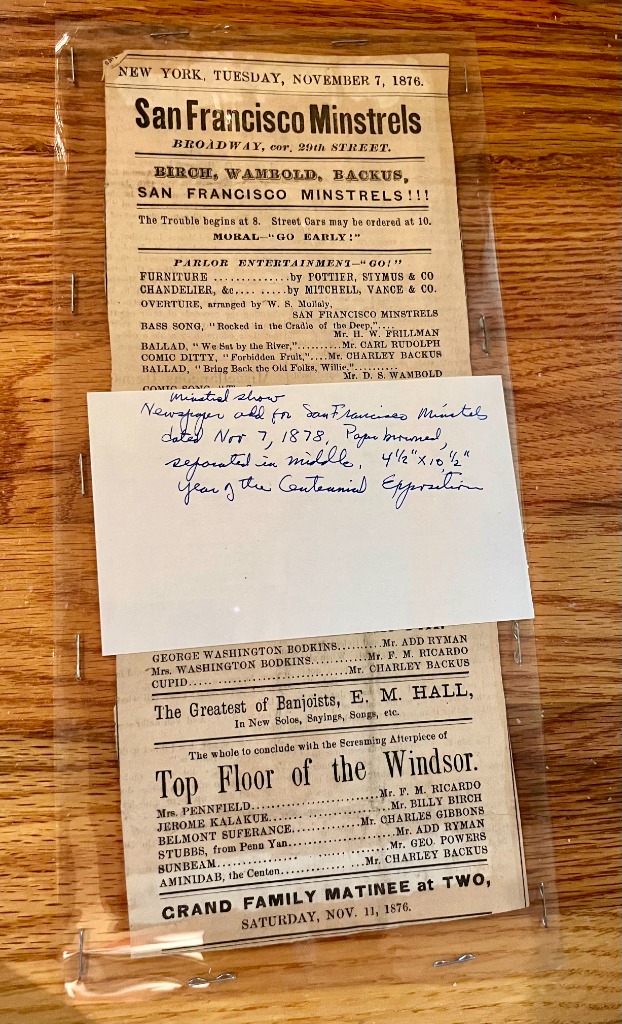 NEW YORK, TUESDAY, NOVEMBER 7, 1876.
San Francisco Minstrels
BROADWAY, cor. 29th STREET.
BIRCH, WAMBOLD, BACKUS,
SAN FRANCISCO MINSTRELS!!!
The Trouble begins at 8. Street Cars may be ordered at 10.
MORAL—"GO EARLY!"
PARLOR ENTERTAINMENT—"GO!"
FURNITURE ..............by POTTIER, STYMUS & CO
CHANDELIER, &c.... .....by MITCHELL, VANCE & CO.
OVERTURE, arranged by W. S. Mullaly,
SAN FRANCISCO MINSTRELS
BASS SONG, "Rocked in the Cradle of the Deep,"....
Mr. H. W. FRILLMAN
BALLAD, "We Sat by the River,".........Mr. CARL RUDOLPH
COMIC DITTY, "Forbidden Fruit,"....Mr. CHARLEY BACKUS
BALLAD, "Bring Back the Old Folks, Willie,"..........
Mr. D. S. WAMBOLD
COMIC SONG
Minstrel show
Newspaper add for San Francisco Minstels
dated Nov 7, 1878, Paper browned,
separated in middle. 4 1/2" x 10 1/2"
year of the Centennial Expposition
GEORGE WASHINGTON BODKINS..........Mr. ADD RYMAN
Mrs. WASHINGTON BODKINS............Mr. F. M. RICARDO
CUPID..... ..........................Mr. CHARLEY BACKUS
The Greatest of Banjoists, E. M. HALL,
In New Solos, Sayings, Songs, etc.
The whole to conclude with the Screaming Afterpiece of
Top Floor of the Windsor.
Mrs. PENNFIELD.......................Mr. F. M. RICARDO
JEROME KALAKUE....... ...............Mr. BILLY BIRCH
BELMONT SUFERANCE............Mr. CHARLES GIBBONS
STUBBS, from Penn Yan...................Mr. ADD RYMAN
SUNBEAM................. ...............Mr. GEO. POWERS
AMINIDAB, the Centen..............Mr. CHARLEY BACKUS
GRAND FAMILY MATINEE at TWO,
SATURDAY, NOV. 11, 1876.